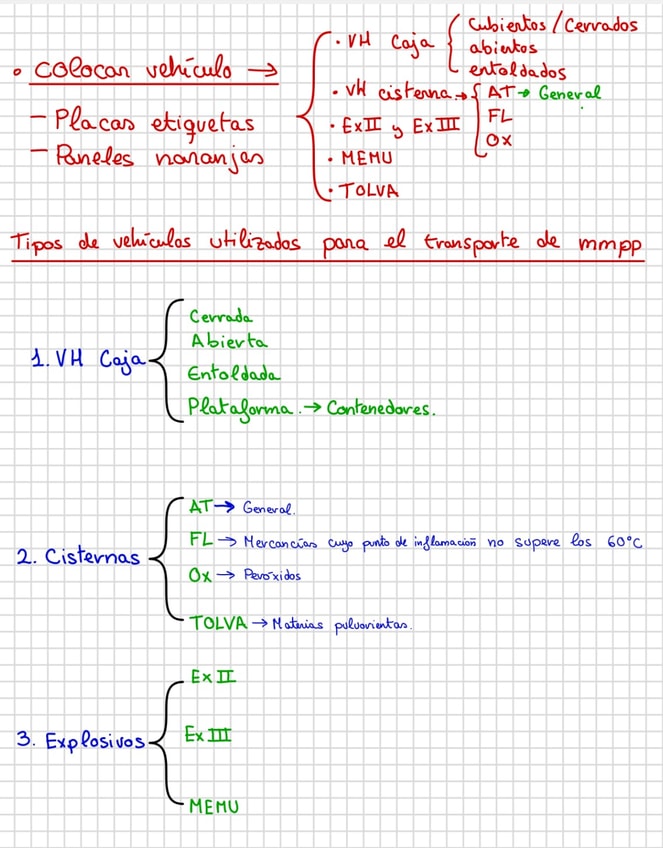 • Colocar vehículo →
– Placas etiquetas
– Paneles naranjas
· VH Caja { Cubiertos / Cerrados
abiertos
entoldados
· VH cisterna → { AT → General
FL
Ox
· Ex II y Ex III
· MEMU
· TOLVA
Tipos de vehículos utilizados para el transporte de mmpp
1. VH Caja
Cerrada
Abierta
Entoldada
Plataforma. → Contenedores.
2. Cisternas
AT → General.
FL → Mercancías cuyo punto de inflamación no supere los 60°C
Ox → Peróxidos
TOLVA → Materias pulvorientas.
3. Explosivos
Ex II
Ex III
MEMU